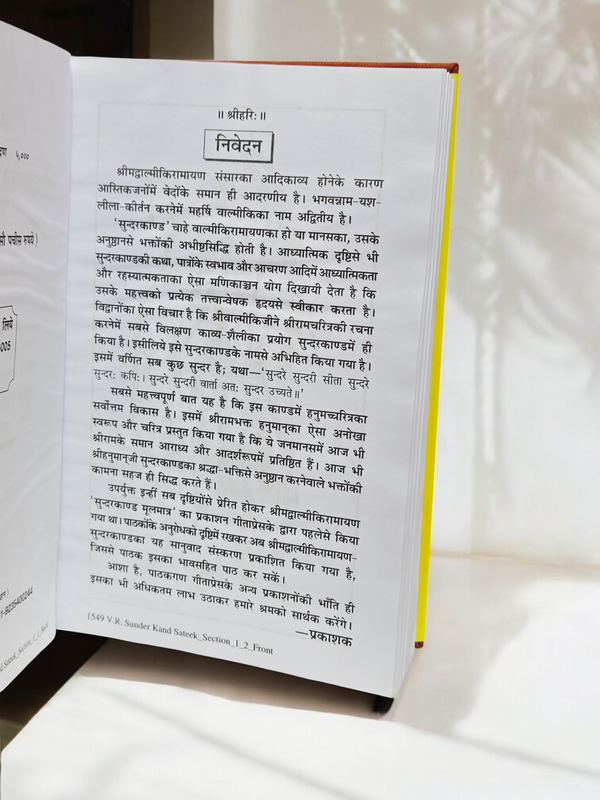 द्रण ५,०००
सौ पचीस रुपये)
लिये
005
1-9235400244
d Sateek_Section_1_1_Back
॥ श्रीहरिः ॥
निवेदन
श्रीमद्वाल्मीकिरामायण संसारका आदिकाव्य होनेके कारण
आस्तिकजनोंमें वेदोंके समान ही आदरणीय है। भगवन्नाम-यश-
लीला-कीर्तन करनेमें महर्षि वाल्मीकिका नाम अद्वितीय है।
'सुन्दरकाण्ड' चाहे वाल्मीकिरामायणका हो या मानसका, उसके
अनुष्ठानसे भक्तोंकी अभीष्टसिद्धि होती है। आध्यात्मिक दृष्टिसे भी
सुन्दरकाण्डकी कथा, पात्रोंके स्वभाव और आचरण आदिमें आध्यात्मिकता
और रहस्यात्मकताका ऐसा मणिकाञ्चन योग दिखायी देता है कि
उसके महत्त्वको प्रत्येक तत्त्वान्वेषक हृदयसे स्वीकार करता है।
विद्वानोंका ऐसा विचार है कि श्रीवाल्मीकिजीने श्रीरामचरित्रकी रचना
करनेमें सबसे विलक्षण काव्य-शैलीका प्रयोग सुन्दरकाण्डमें ही
किया है। इसीलिये इसे सुन्दरकाण्डके नामसे अभिहित किया गया है।
इसमें वर्णित सब कुछ सुन्दर है; यथा—'सुन्दरे सुन्दरी सीता सुन्दरे
सुन्दरः कपिः। सुन्दरे सुन्दरी वार्ता अतः सुन्दर उच्यते॥'
सबसे महत्त्वपूर्ण बात यह है कि इस काण्डमें हनुमच्चरित्रका
सर्वोत्तम विकास है। इसमें श्रीरामभक्त हनुमान्‌का ऐसा अनोखा
स्वरूप और चरित्र प्रस्तुत किया गया है कि ये जनमानसमें आज भी
श्रीरामके समान आराध्य और आदर्शरूपमें प्रतिष्ठित हैं। आज भी
श्रीहनुमान्‌जी सुन्दरकाण्डका श्रद्धा-भक्तिसे अनुष्ठान करनेवाले भक्तोंकी
कामना सहज ही सिद्ध करते हैं।
उपर्युक्त इन्हीं सब दृष्टियोंसे प्रेरित होकर श्रीमद्वाल्मीकिरामायण
'सुन्दरकाण्ड मूलमात्र' का प्रकाशन गीताप्रेसके द्वारा पहलेसे किया
गया था। पाठकोंके अनुरोधको दृष्टिमें रखकर अब श्रीमद्वाल्मीकिरामायण-
सुन्दरकाण्डका यह सानुवाद संस्करण प्रकाशित किया गया है,
जिससे पाठक इसका भावसहित पाठ कर सकें।
आशा है, पाठकगण गीताप्रेसके अन्य प्रकाशनोंकी भाँति ही
इसका भी अधिकतम लाभ उठाकर हमारे श्रमको सार्थक करेंगे।
—प्रकाशक
1549 V.R. Sunder Kand Sateek_Section_1_2_Front